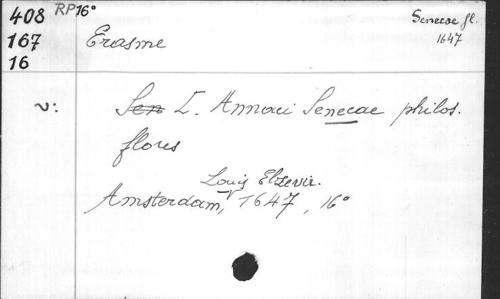 408 RP16°
167
16
Senecae fl.
1647
Erasme
v: Sen L. Annaei Senecae philos.
flores
Louis Elzevir.
Amsterdam, 1647, 16°